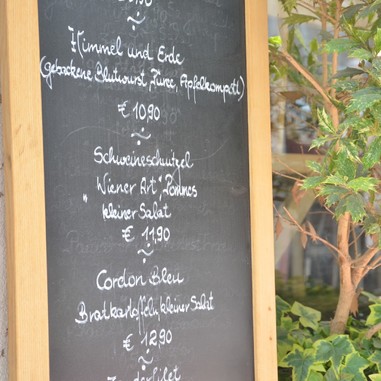 Himmel und Erde
(gebackene Blutwurst, Püree, Apfelkompott)
€ 10,90
Schweineschnitzel
"Wiener Art", Pommes
kleiner Salat
€ 11,90
Cordon Bleu
Bratkartoffeln, kleiner Salat
€ 12,90